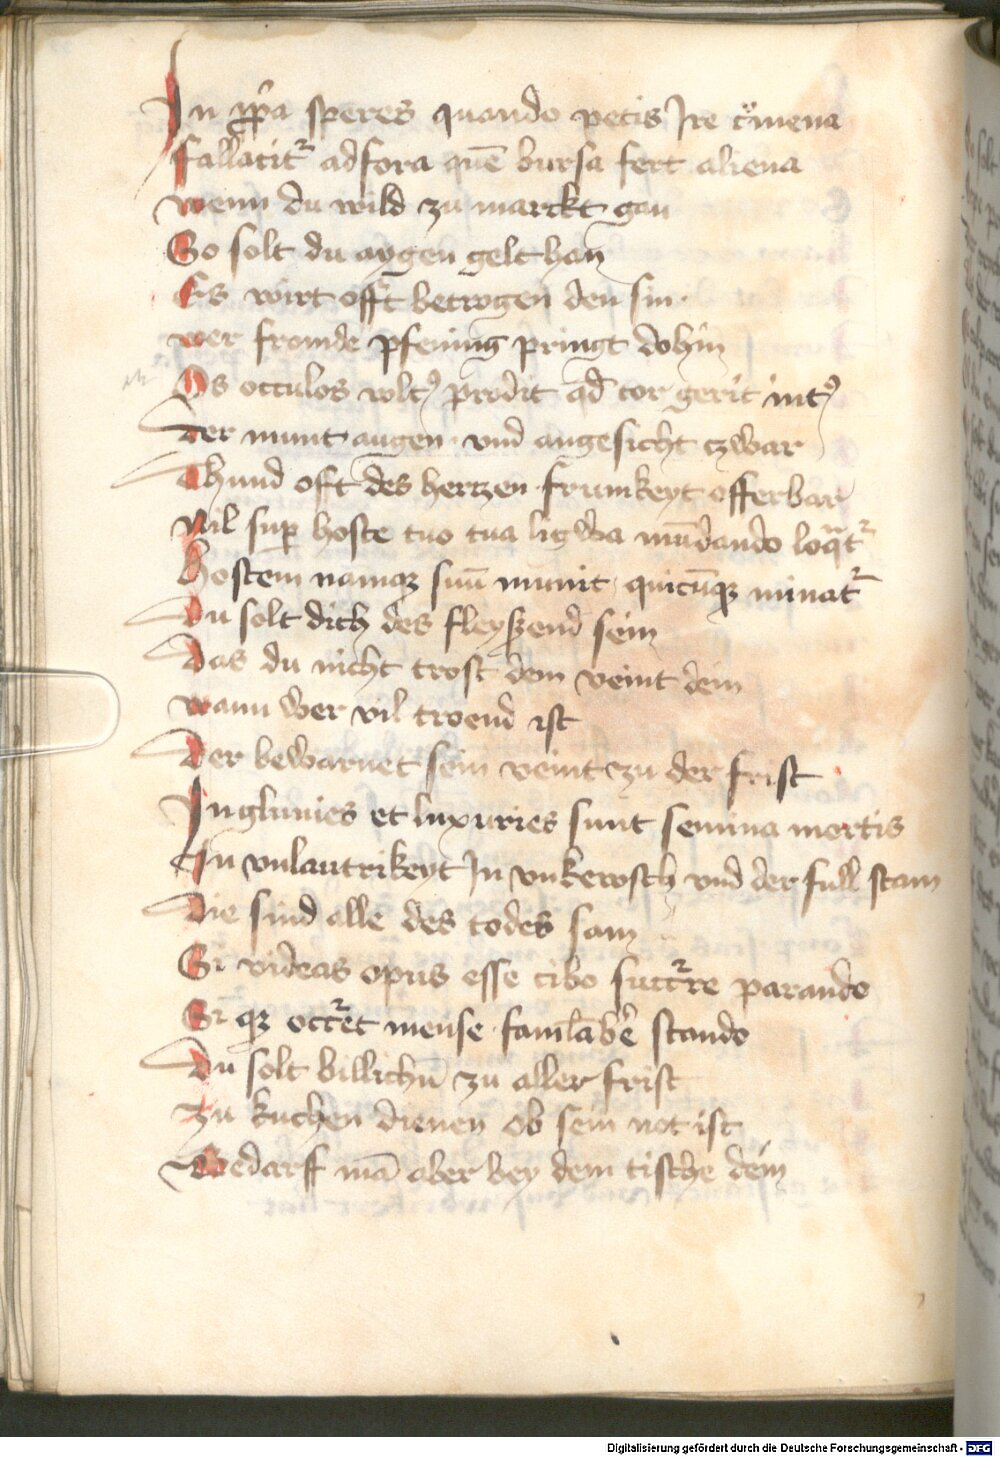 In ꝓp̄a speres quando petis Ire cͬmena
fallacitᷣ ad fora quē bursa fert aliena
wenn du wild zu marckt gan
So solt du aygen gelt han
Es wirt offt betrogen den sin
wer fromde pfening pringt dohin
Os occulos vltꝰ prodit qd̄ cor gerit intꝰ
Der munt augen vnd angesicht czwar
Thund oft des hertzen frumkeyt offerbar
Nil suꝑ hoste tuo tua ligwa mīdando loqͣtᷣ
Hostem namqꝫ suū munit quicūqꝫ minatᷣ
Du solt dich des fleyssend sein
Das du nicht trost dem veint dein
wann wer vil troend ist
Der bewarnet sein veint zu der frist
Ingluuies et luxuries sunt semina mortis
In vnlautrikeyt In vnkewsch vnd der full stam
Die sind alle des todes sam
Si videas opus esse cibo succᷣre parando
Si qꝫ occᷣret mense stando
Du solt billichū zu aller frist
Zu kuchen dienen ob sein not ist
Bedarff mā aber bey dem tische dein
Digitalisierung gefördert durch die Deutsche Forschungsgemeinschaft - DFG